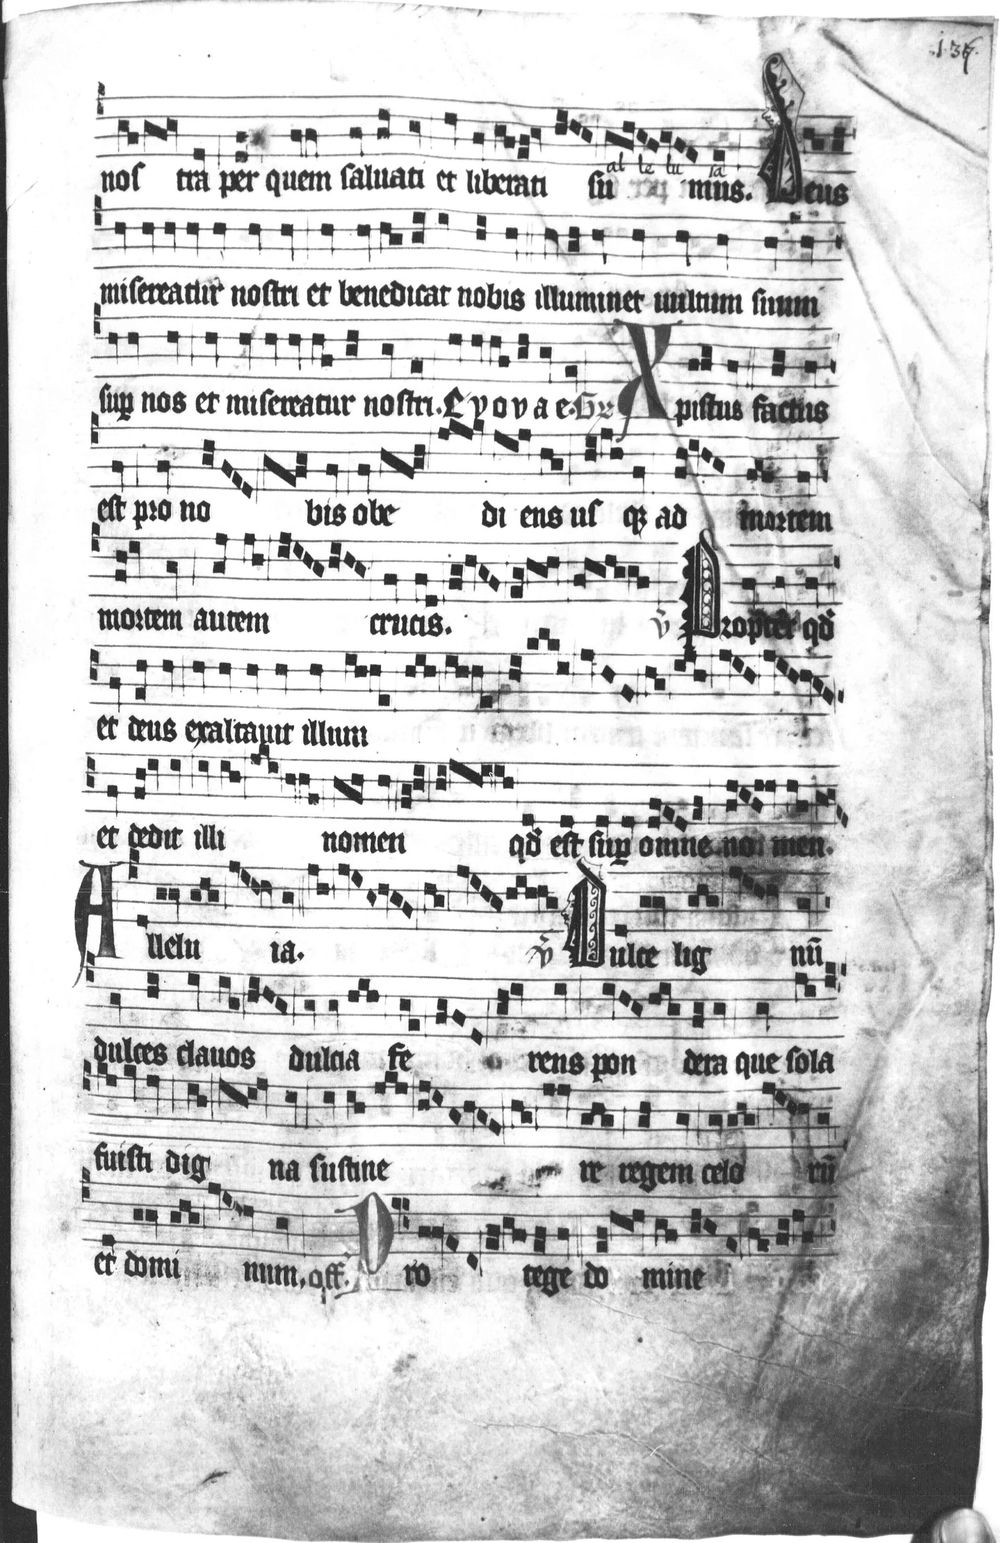 .1.37.
al le lu ia
nos tra per quem saluati et liberati su mus. Deus
misereatur nostri et benedicat nobis illuminet uultum suum
sup nos et misereatur nostri. E v o v a e. Gr Xpistus factus
est pro no bis obe di ens us qz ad mortem
mortem autem crucis. v Propter qd
et deus exaltauit illum
et dedit illi nomen qd est sup omne no men.
Allelu ia. v Dulce lig nū
dulces clauos dulcia fe rens pon dera que sola
fuisti dig na sustine re regem celo rū
et domi num, off. Pro tege do mine